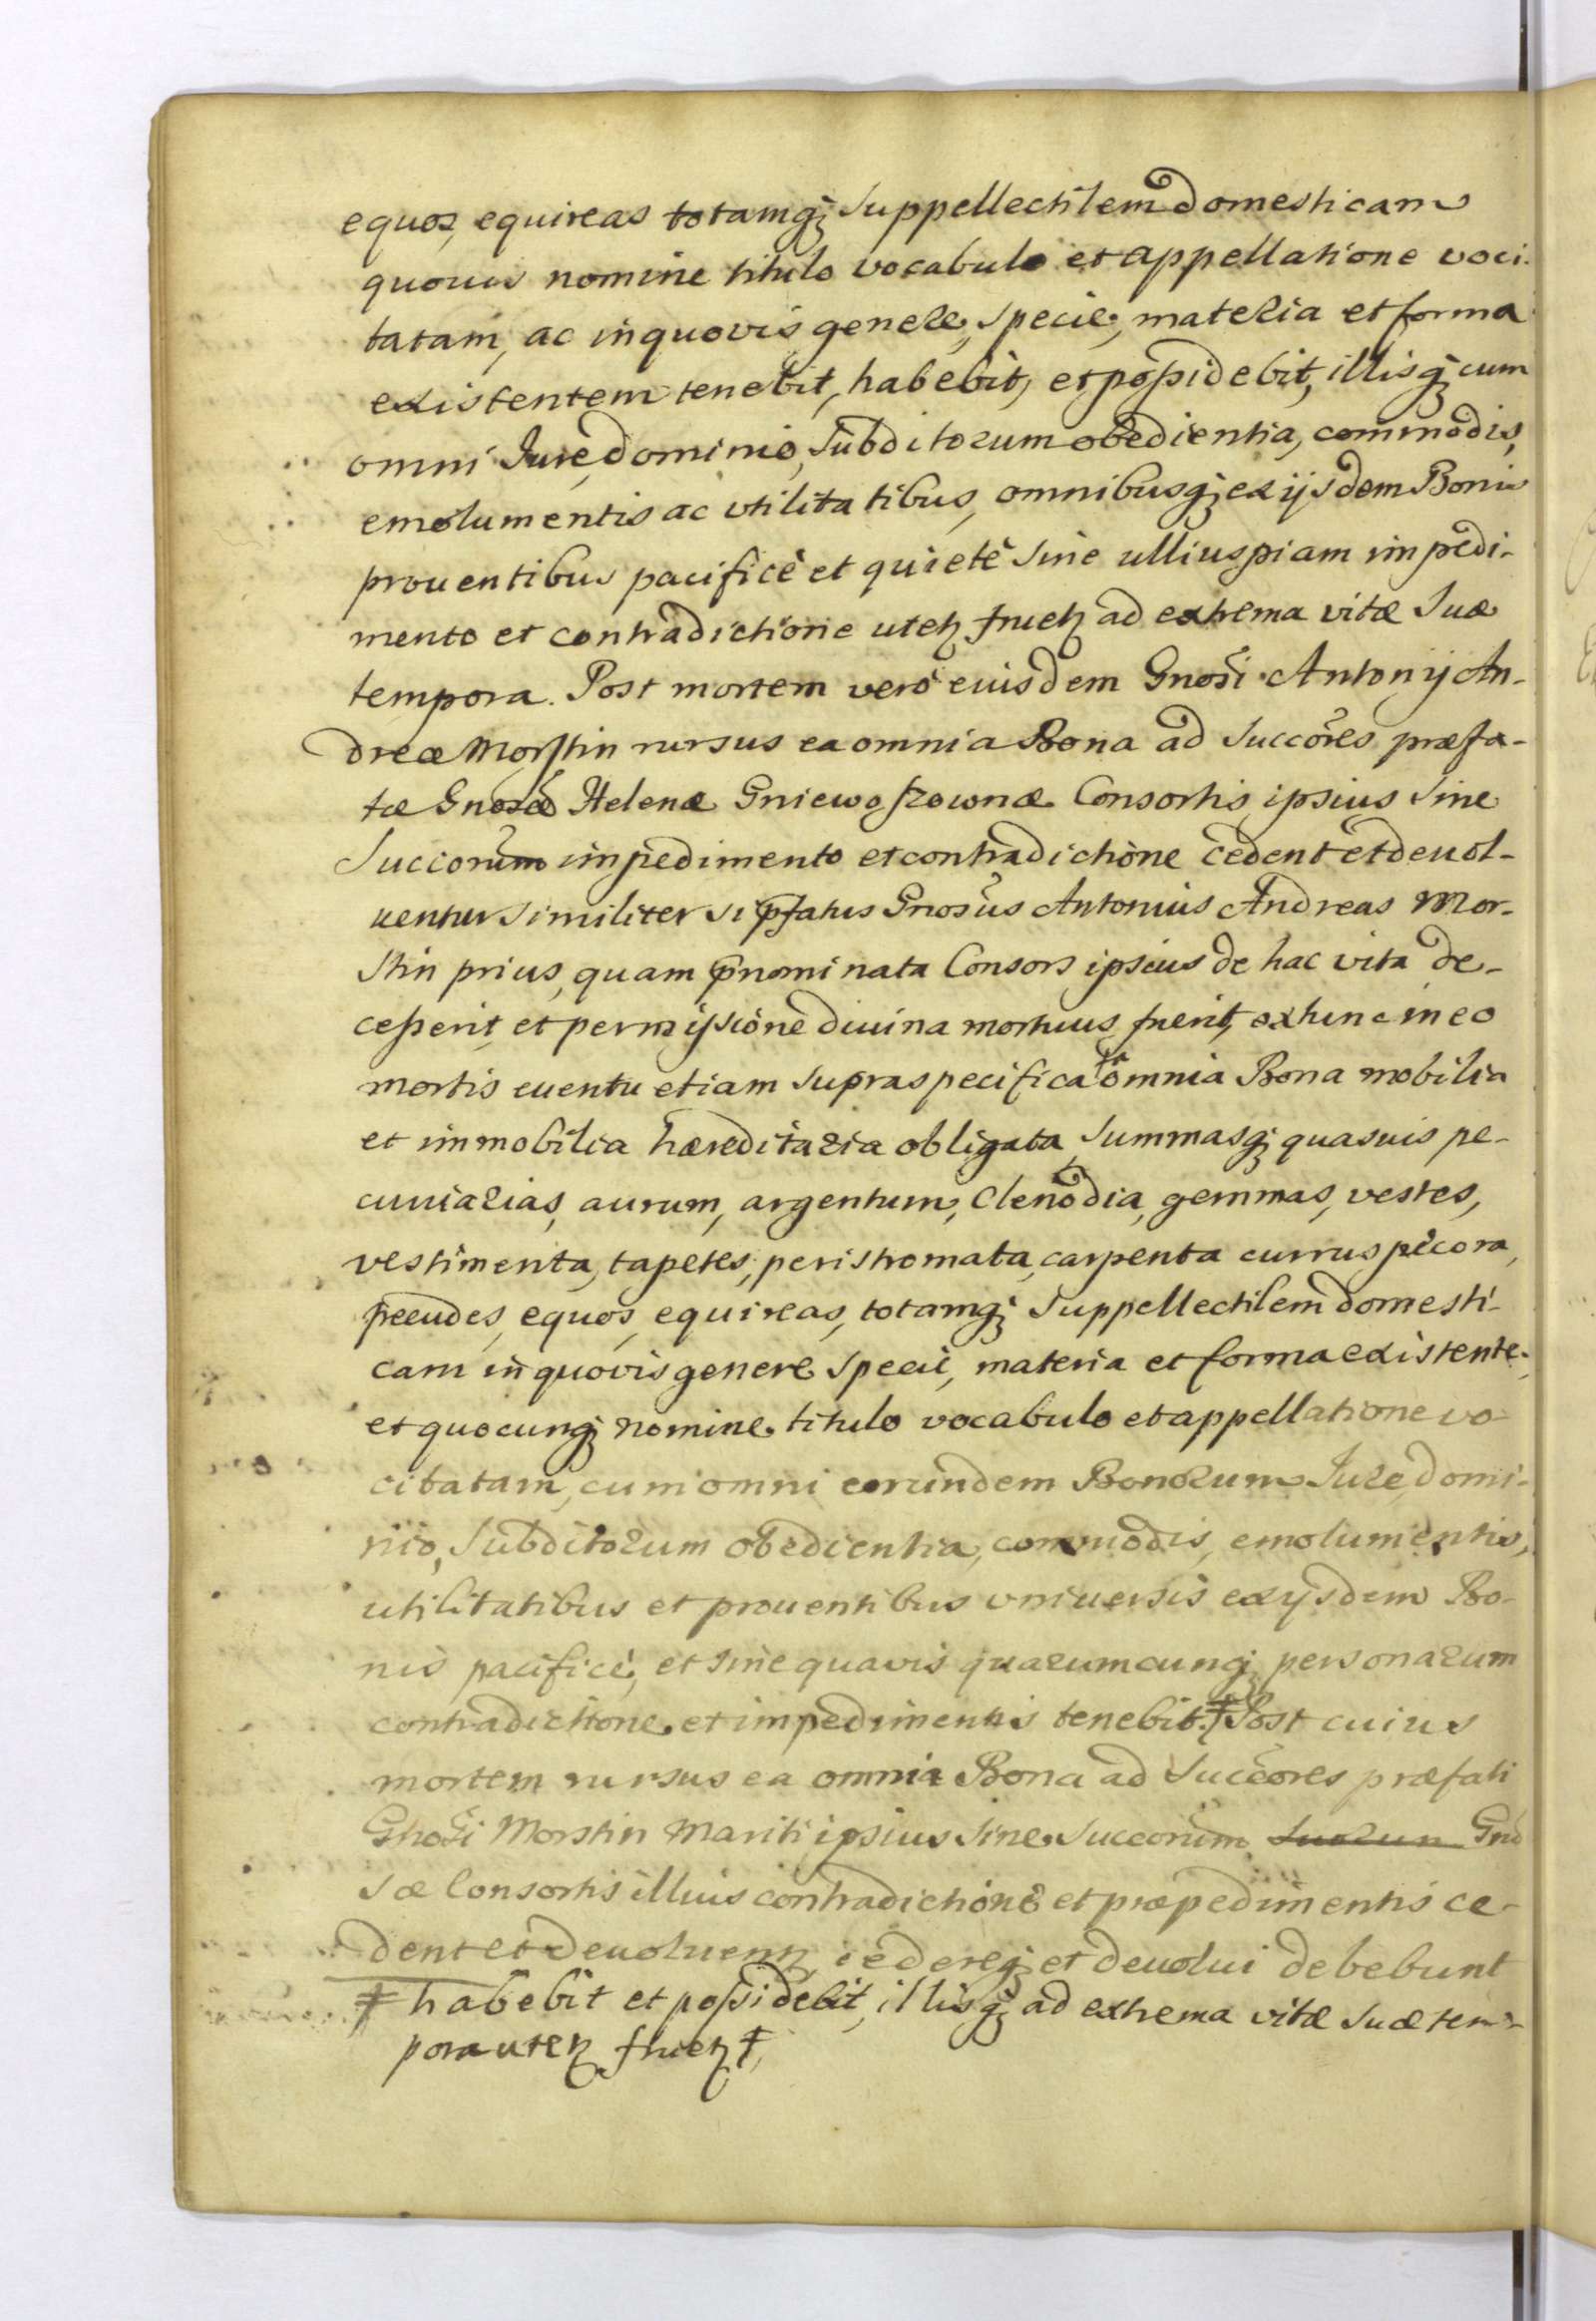 equos, equireas totamq́; suppellectilem domesticam
quouis nomine titulo vocabulo et appellatione voci-
tatam, ac in quovis genere, specie, materia et forma
existentem tenebit, habebit, et possidebit, illisq́; cum
omni Iure, dominio, subditorum obedientia, commodis,
emolumentis ac vtilitatibus, omnibusq́; ex ijsdem Bonis
prouentibus pacificè et quietè sine ulliuspiam impedi-
mento et contradictione utetꝫ fruetꝫ ad extrema vitæ suæ
tempora. Post mortem verò eiusdem Gnosi Antonij An-
dreæ Morstin rursus ea omnia Bona ad succores præfa-
tæ Gnosæ Helenæ Gniewoszownæ Consortis ipsius sine
succorum impedimento et contradictione cedent et deuol-
uentur similiter si pfatus Gnosus Antonius Andreas Mor-
stin prius, quam pnominata Consors ipsius de hac vita de-
cesserit, et permissione diuina mortuus fuerit, extunc in eo
mortis euentu etiam supraspecificata omnia Bona mobilia
et immobilia hæreditaria obligata, summasq́; quasuis pe-
cuniarias, aurum, argentum, Clenodia, gemmas, vestes,
vestimenta, tapetes, peristromata, carpenta currus pecora,
pecudes, equos, equireas, totamq́; suppellectilem domesti-
cam in quovis genere specie, materia et forma existente,
et quocunq́; nomine titulo vocabulo et appellatione vo-
citatam, cum omni eorundem Bonorum Iure, domi-
nio, subditorum obedientia, commodis, emolumentis,
utilitatibus et prouentibus vniuersis ex ijsdem Bo-
nis pacificè, et sine quavis quarumcunq́; personarum
contradictione et impedimentis tenebit ‡ Post cuius
mortem rursus ea omnia Bona ad succores præfati
Gnosi Morstin Mariti ipsius sine succorum suorum Gno
sæ Consortis illius contradictione et præpedimentis ce-
dent et deuoluentꝫ, cedereq́; et deuolui debebunt
‡ habebit et possidebit, illisq́; ad extrema vitæ suæ tem-
pora utetꝫ fruetꝫ ‡,